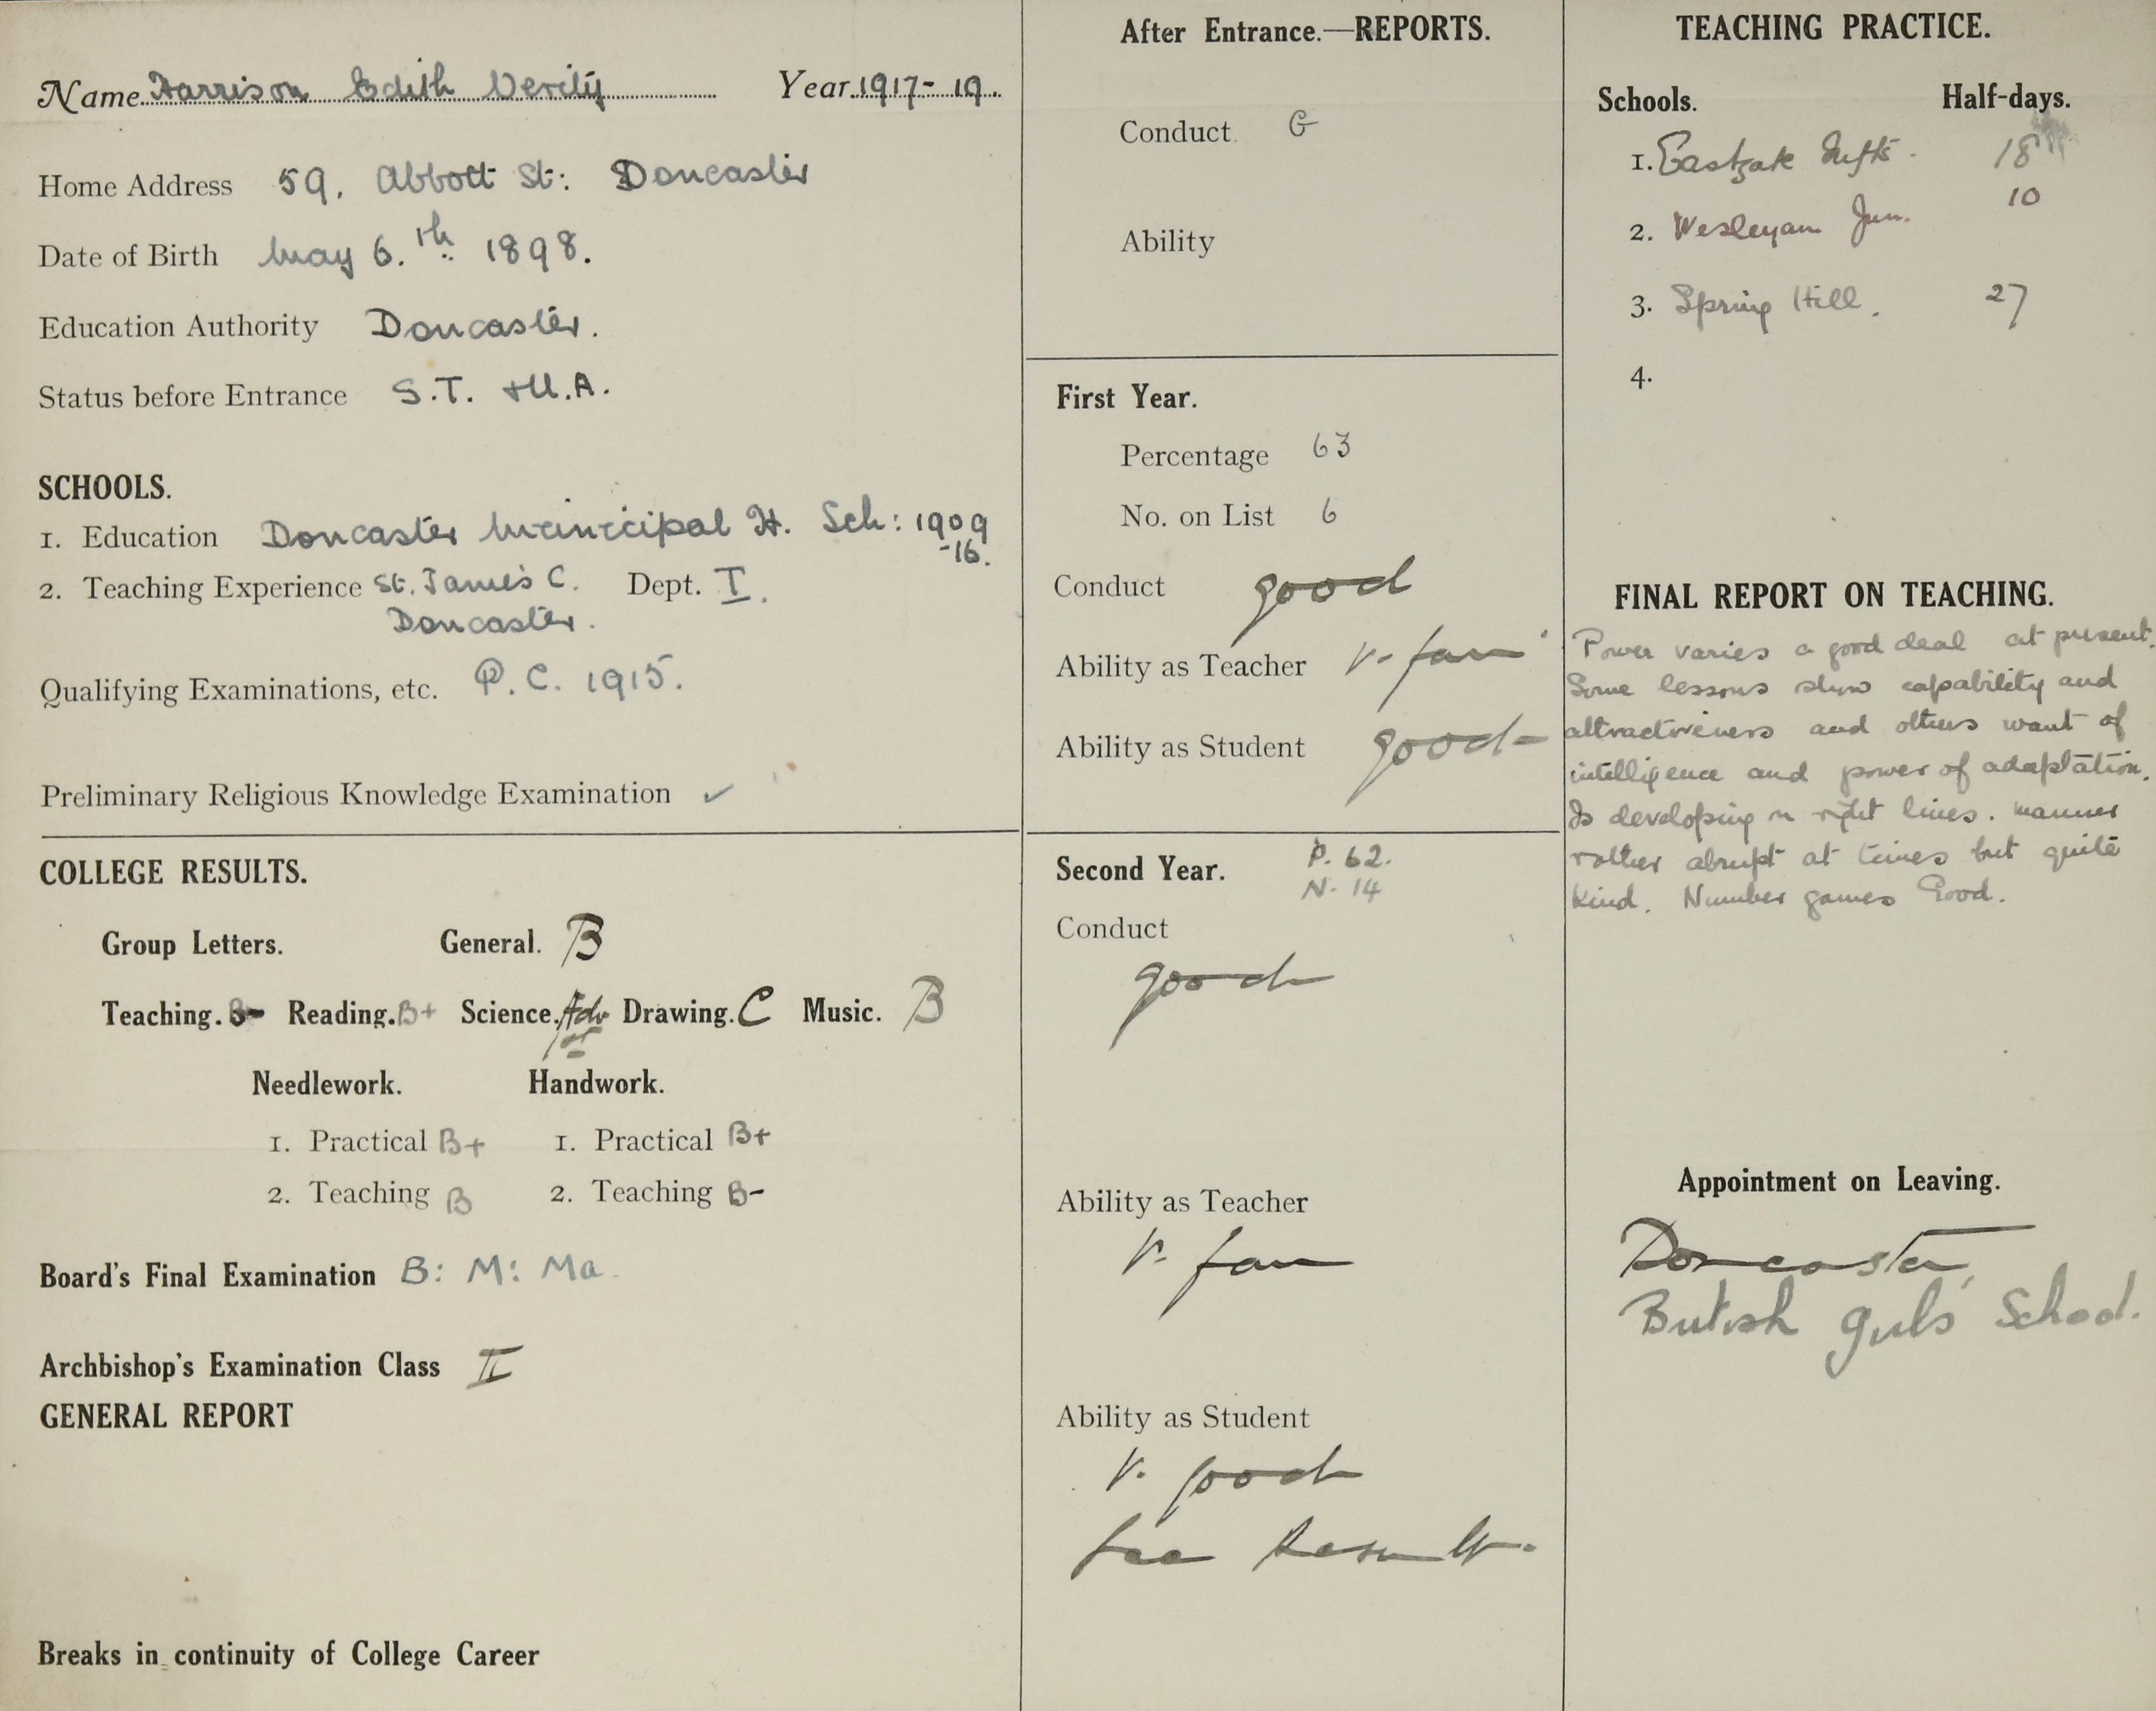 Name Harrison Edith Verity Year 1917-19.
Home Address 59, Abbott St: Doncaster
Date of Birth May 6.th 1898.
Education Authority Doncaster.
Status before Entrance S.T. + U.A.
SCHOOLS.
1. Education Doncaster Municipal H. Sch: 1909
-16.
2. Teaching Experience St. James C. Dept. I.
Doncaster.
Qualifying Examinations, etc. P.C. 1915.
Preliminary Religious Knowledge Examination ✓
COLLEGE RESULTS.
Group Letters. General. B
Teaching. B- Reading. B+ Science. Adv Drawing. C Music. B
Needlework. Handwork.
1. Practical B+ 1. Practical B+
2. Teaching B 2. Teaching B-
Board's Final Examination B: M: Ma.
Archbishop's Examination Class II
GENERAL REPORT
Breaks in continuity of College Career
After Entrance.—REPORTS.
Conduct. G
Ability
First Year.
Percentage 63
No. on List 6
Conduct good
Ability as Teacher v. fair
Ability as Student good-
Second Year. P. 62.
N. 14
Conduct
good
Ability as Teacher
v. fair
Ability as Student
v. good
See Result.
TEACHING PRACTICE.
Schools. Half-days.
1. Eastgate Infts. 18
2. Wesleyan Jun. 10
3. Spring Hill. 27
4.
FINAL REPORT ON TEACHING.
Power varies a good deal at present.
Some lessons show capability and
attractiveness and others want of
intelligence and power of adaptation.
Is developing on right lines. Manner
rather abrupt at times but quite
kind. Number games Good.
Appointment on Leaving.
Doncaster,
British Girls' School.